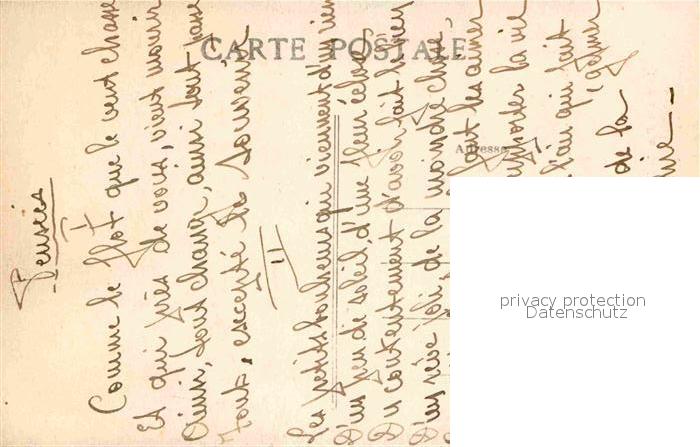 CARTE POSTALE
Adresse
Pensées
I
Comme le flot que le vent chasse
Et qui près de vous, vient mourir
Ainsi, tout change, ainsi tout passe
Tout, excepté le Souvenir
II
Les petits bonheurs qui viennent d'un rien
D'un peu de soleil, d'une fleur éclose
Du contentement d'avoir fait le bien
D'un rêve joli, de la moindre chose,
faut les aimer
la vie
qui fait
de la
privacy protection
Datenschutz